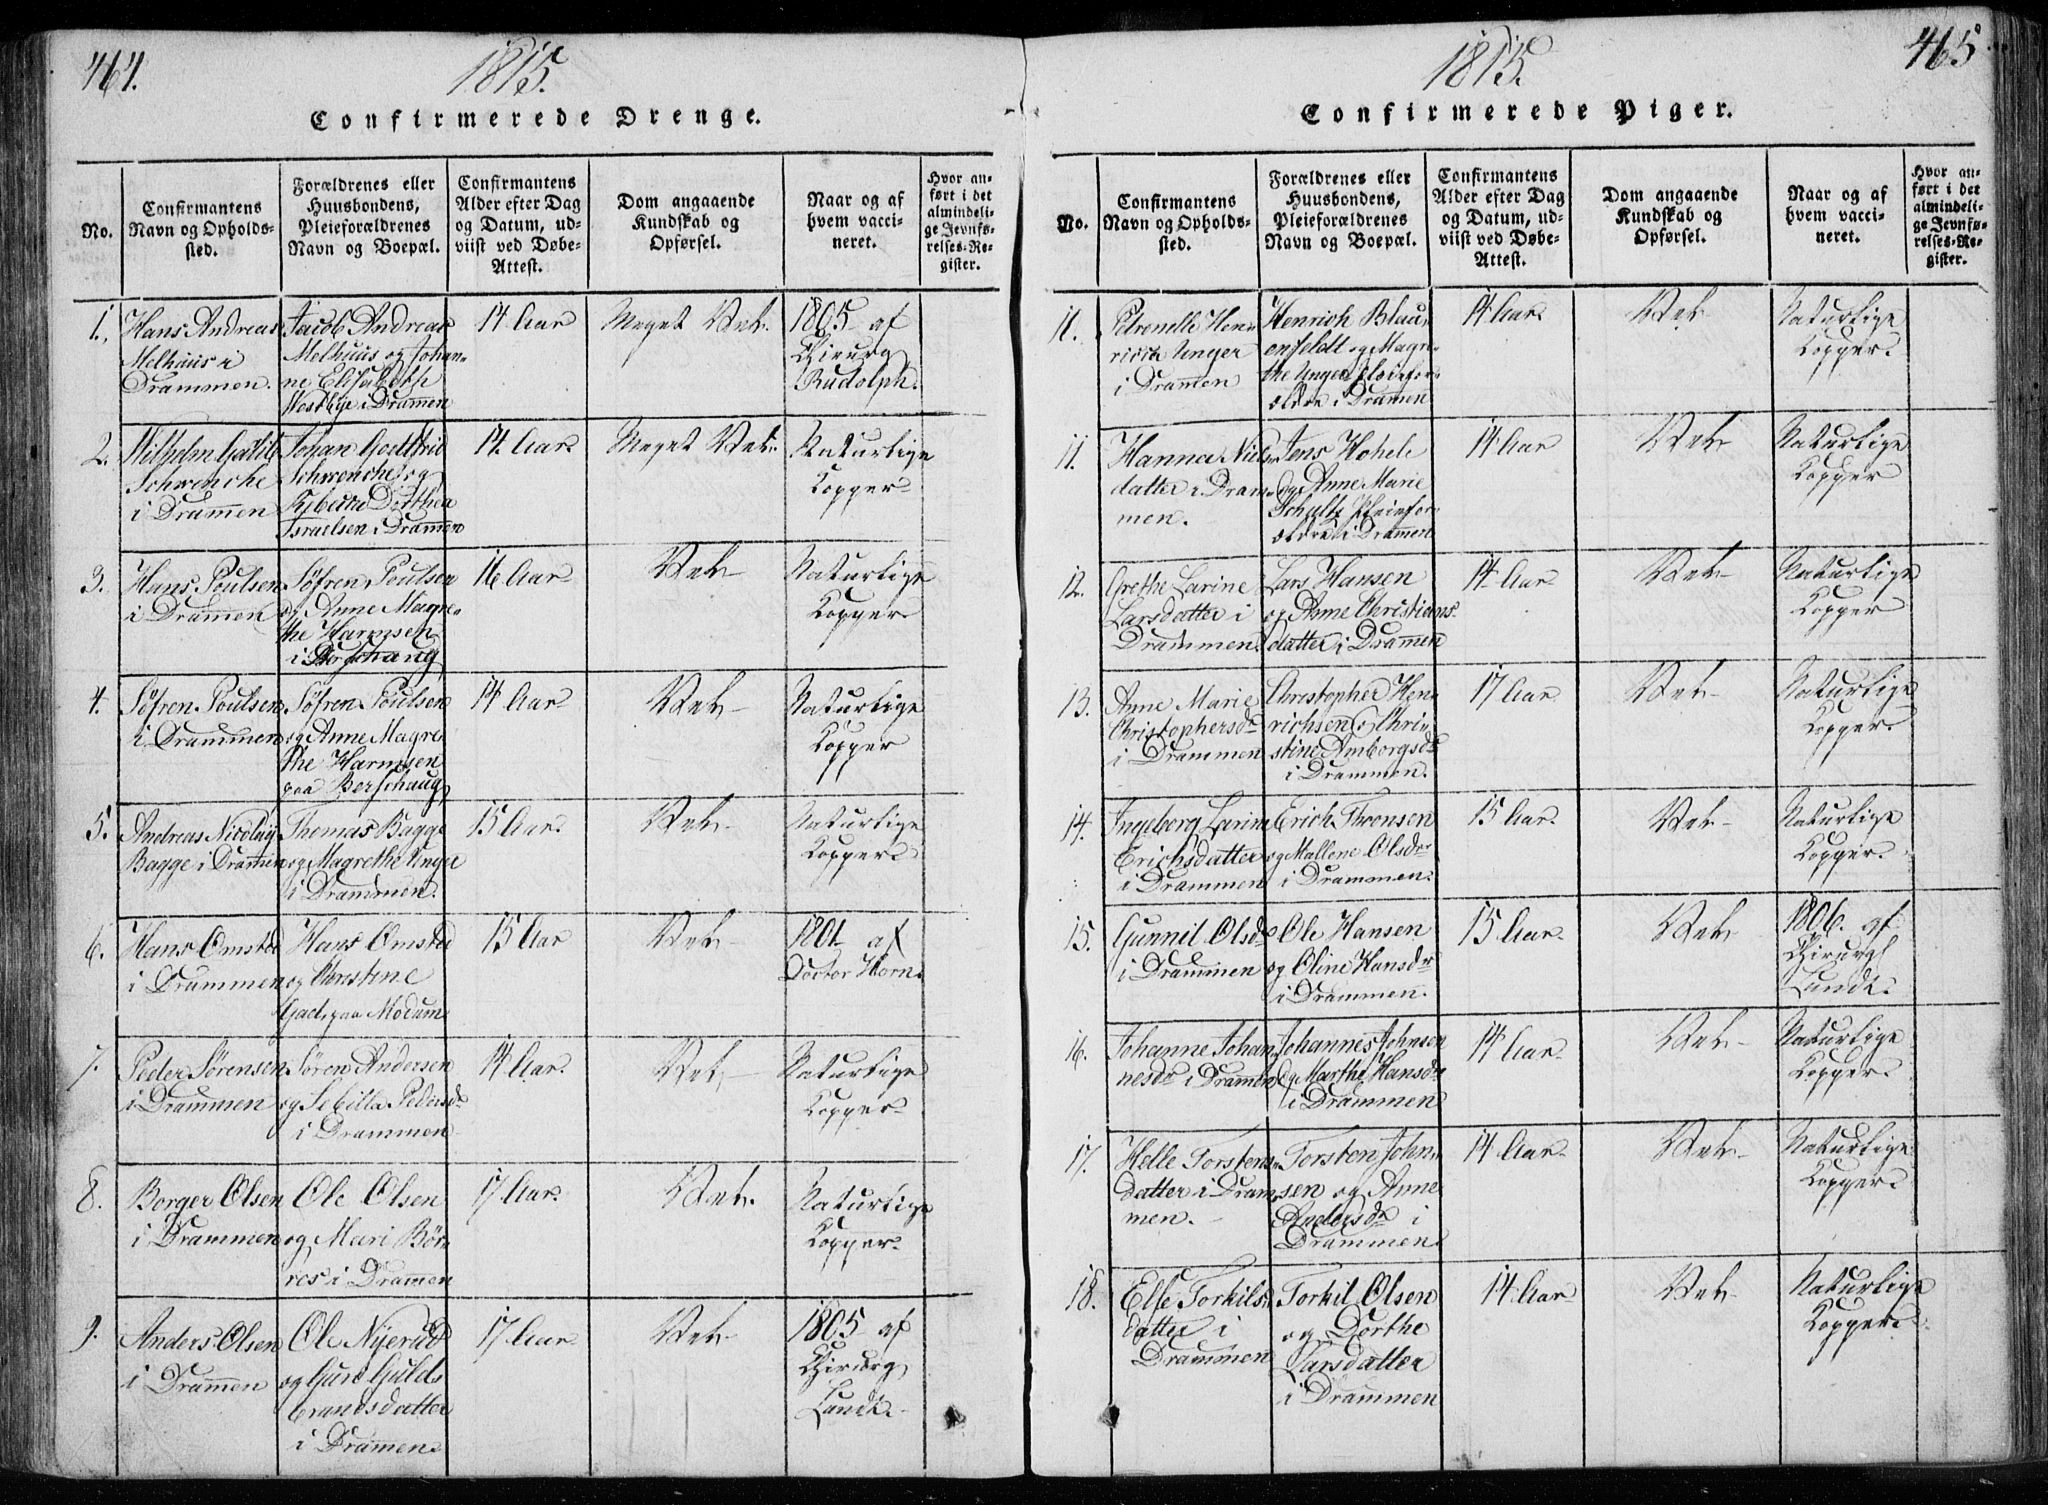 464.
1815.
Confirmerede Drenge.
No.
Confirmantens
Navn og Opholds-
sted.
Forældrenes eller
Huusbondens,
Pleieforældrenes
Navn og Boepæl.
Confirmantens
Alder efter Dag
og Datum, ud-
viist ved Døbe-
Attest.
Dom angaaende
Kundskab og
Opførsel.
Naar og af
hvem vacci-
neret.
Hvor an-
ført i det
almindeli-
ge Jevnfø-
relses-Re-
gister.
1.
Hans Andreas
Melhuus i
Drammen.
Jacob Andreas
Melhuus og Johan-
ne Elisabeth
Westbye i Dramen
14 Aar
Meget Vel.
1805 af
Chirurg
Rudolph.
2.
Wilhelm Gotlib
Schwencke
i Drammen
Johan Godtfrid
Schwenche og
Rebecca Dorthea
Israelsen i Drammen
14. Aar.
Meget Vel.
Naturlige
Kopper
3.
Hans Poulsen
i Dramen
Søfren Poulsen
og Anne Magre-
the Harmsen
i Berschaug
16 Aar
Vel
Naturlige
Kopper
4.
Søfren Poulsen
i Drammen
Søfren Poulsen
og Anne Magre
the Harmsen
paa Berschaug
14 Aar
Vel
Naturlige
Kopper
5.
Andreas Nicolay
Bagge i Dramen
Thomas Bagge
og Magrethe Unger
i Drammen.
15 Aar.
Vel
Naturlige
Kopper
6.
Hans Omsted
i Drammen
Hans Omsted
og Christine
Gad paa Modum
15 Aar
Vel
1801 af
Doctor Horn.
7.
Peder Sørensen
i Drammen
Søren Andersen
og Sebilla Pedersdr
i Drammen
14 Aar.
Vel
Naturlige
Kopper
8.
Borger Olsen
i Drammen
Ole Olsen
og Mari Bør-
res i Dramen
17 Aar.
Vel.
Naturlige
Kopper.
9.
Anders Olsen
i Dramen
Ole Nyerud
og Guri Guld-
brandsdatter
i Dramen
17 Aar
Vel
1805 af
Chirurg
Lund.
465
1815.
Confirmerede Piger.
No.
Confirmantens
Navn og Opholds-
sted.
Forældrenes eller
Huusbondens,
Pleieforældrenes
Navn og Boepæl.
Confirmantens
Alder efter Dag
og Datum, ud-
viist ved Døbe-
Attest.
Dom angaaende
Kundskab og
Opførsel.
Naar og af
hvem vacci-
neret.
Hvor an-
ført i det
almindeli-
ge Jevnfø-
relses-Re-
gister.
11.
Petronelle Hen-
rich Unger
i Dramen
Henrich Blau-
enfeldt og Magre-
the Unger Pleiefor-
ældre i Dramen
14 Aar.
Vel
Naturlige
Kopper.
11.
Hanna Niels-
datter i Dram-
men.
Jens Hohele
og Anne Marie
Schultz Pleiefor-
ældre i Dramen
14 Aar
Vel
Naturlige
Kopper
12.
Grethe Larine
Larsdatter i
Drammen.
Lars Hansen
og Anne Christians-
datter i Dramen
14 Aar
Vel
Naturlige
Kopper
13.
Anne Marie
Christophersdr
i Drammen
Christopher Hen-
richsen og Chri-
stine Amborgsdr
i Drammen.
17 Aar
Vel
Naturlige
Kopper
14.
Ingeborg Larine
Erichsdatter
i Drammen
Erich Thronsen
og Mallene Olsdr
i Drammen.
15 Aar.
Vel
Naturlige
Kopper.
15.
Gunnil Olsdr
i Drammen
Ole Hansen
og Oline Hansdr
i Drammen.
15 Aar.
Vel
1806. af
Chirurg
Lund.
16.
Johanne Johan-
nesdr i Dramen
Johannes Johnsen
og Marthe Hansdr
i Drammen
14 Aar.
Vel
Naturlige
Kopper
17.
Helle Torstens-
datter i Dram-
men.
Torsten John-
sen og Anne
Andersdr i
Drammen.
14 Aar.
Vel
Naturlige
Kopper
18.
Else Torkils-
datter i
Drammen
Torkil Olsen
og Dorthe
Larsdatter
i Drammen
14 Aar
Vel
Naturlige
Kopper